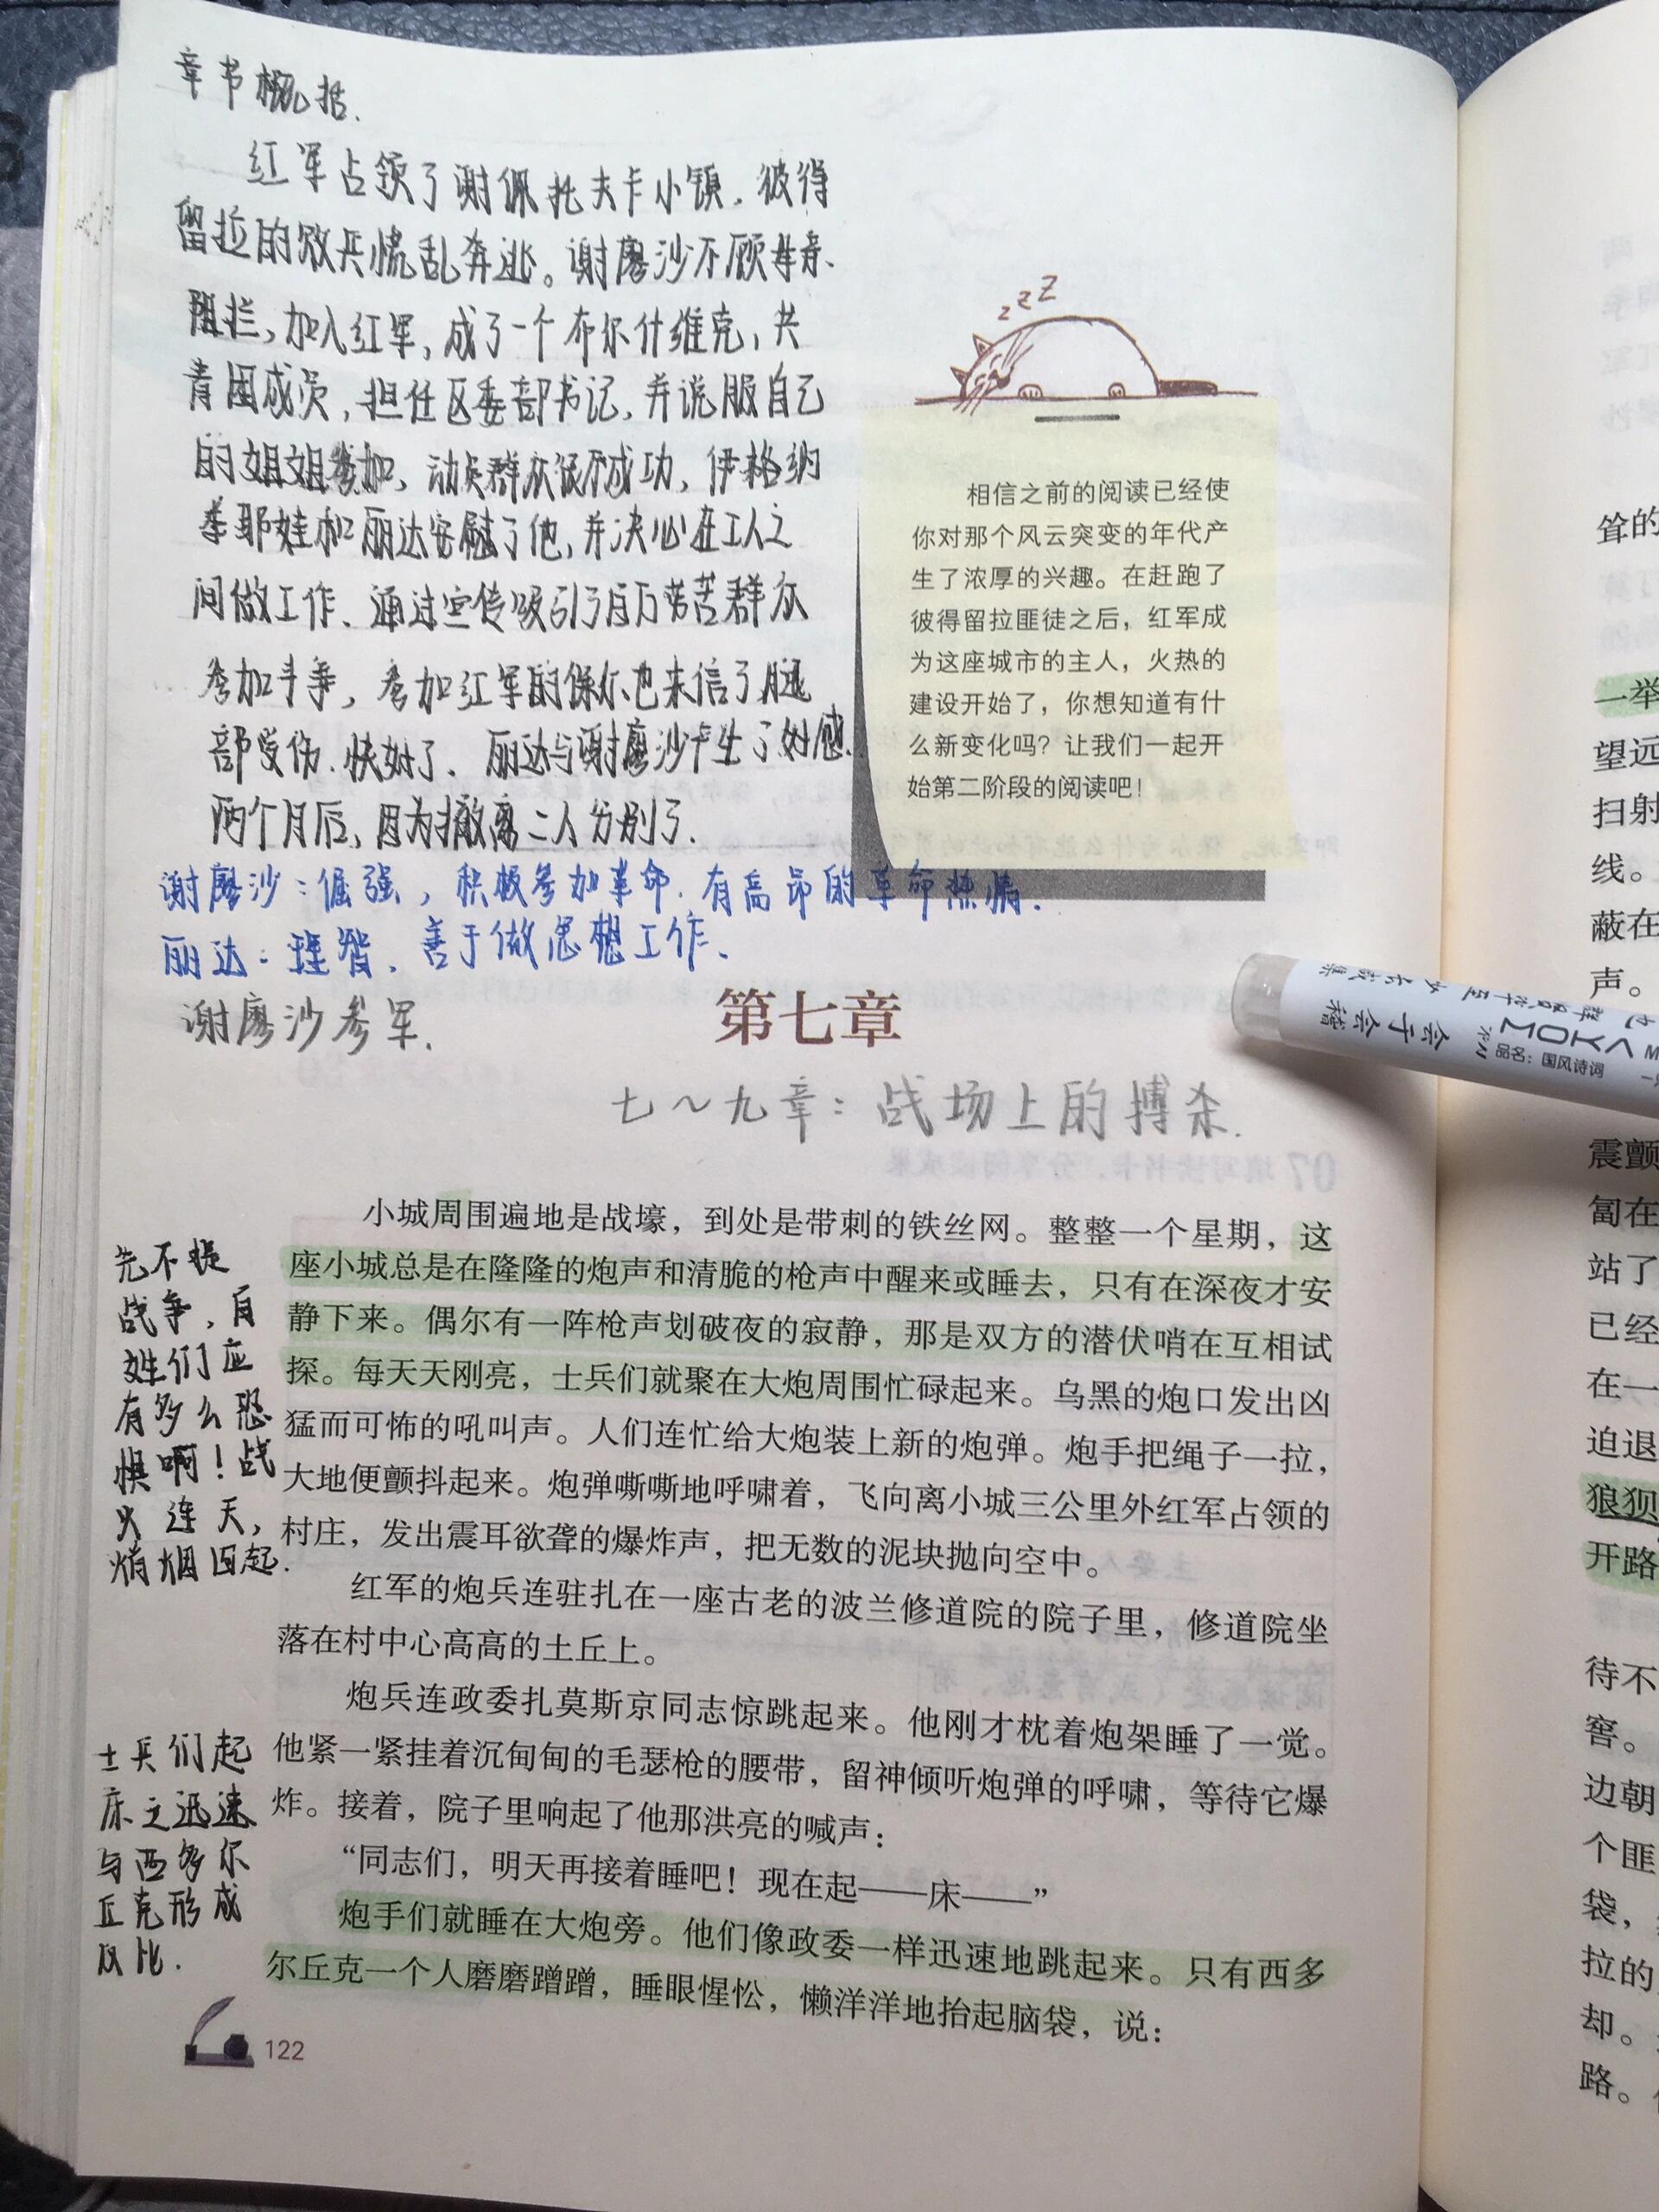 章节概括.
红军占领了谢佩托夫卡小镇.彼得
留拉的败兵慌乱奔逃。谢廖沙不顾母亲、
阻拦,加入红军,成了一个布尔什维克,共
青团成员,担任区委部书记,并说服自己
的姐姐参加,动员群众很不成功,伊格纳
季耶娃和丽达安慰了他,并决心在工人之
间做工作、通过宣传吸引了百万劳苦群众
参加斗争,参加红军的保尔也来信了,腿
部受伤.快好了.丽达与谢廖沙产生了好感.
两个月后,因为撤离二人分别了.
谢廖沙:倔强,积极参加革命.有高昂的革命热情.
丽达:理智.善于做思想工作.
谢廖沙参军.
zzZ
相信之前的阅读已经使
你对那个风云突变的年代产
生了浓厚的兴趣。在赶跑了
彼得留拉匪徒之后，红军成
为这座城市的主人，火热的
建设开始了，你想知道有什
么新变化吗？让我们一起开
始第二阶段的阅读吧！
第七章
七～九章:战场上的搏杀.
小城周围遍地是战壕，到处是带刺的铁丝网。整整一个星期，这
座小城总是在隆隆的炮声和清脆的枪声中醒来或睡去，只有在深夜才安
静下来。偶尔有一阵枪声划破夜的寂静，那是双方的潜伏哨在互相试
探。每天天刚亮，士兵们就聚在大炮周围忙碌起来。乌黑的炮口发出凶
猛而可怖的吼叫声。人们连忙给大炮装上新的炮弹。炮手把绳子一拉，
大地便颤抖起来。炮弹嘶嘶地呼啸着，飞向离小城三公里外红军占领的
村庄，发出震耳欲聋的爆炸声，把无数的泥块抛向空中。
红军的炮兵连驻扎在一座古老的波兰修道院的院子里，修道院坐
落在村中心高高的土丘上。
炮兵连政委扎莫斯京同志惊跳起来。他刚才枕着炮架睡了一觉。
他紧一紧挂着沉甸甸的毛瑟枪的腰带，留神倾听炮弹的呼啸，等待它爆
炸。接着，院子里响起了他那洪亮的喊声：
“同志们，明天再接着睡吧！现在起——床——”
炮手们就睡在大炮旁。他们像政委一样迅速地跳起来。只有西多
尔丘克一个人磨磨蹭蹭，睡眼惺忪，懒洋洋地抬起脑袋，说：
先不提
战争,百
姓们应
有多么恐
惧啊!战
火连天,
硝烟四起.
士兵们起
床之迅速
与西多尔
丘克形成
对比.
122
品名：国风诗词
耸的
一举
望远
扫射
线。
蔽在
声。
震颤
匐在
站了
已经
在一
迫退
狼狈
开路
待不
窖。
边朝
个匪
袋，
拉的
却。
路。